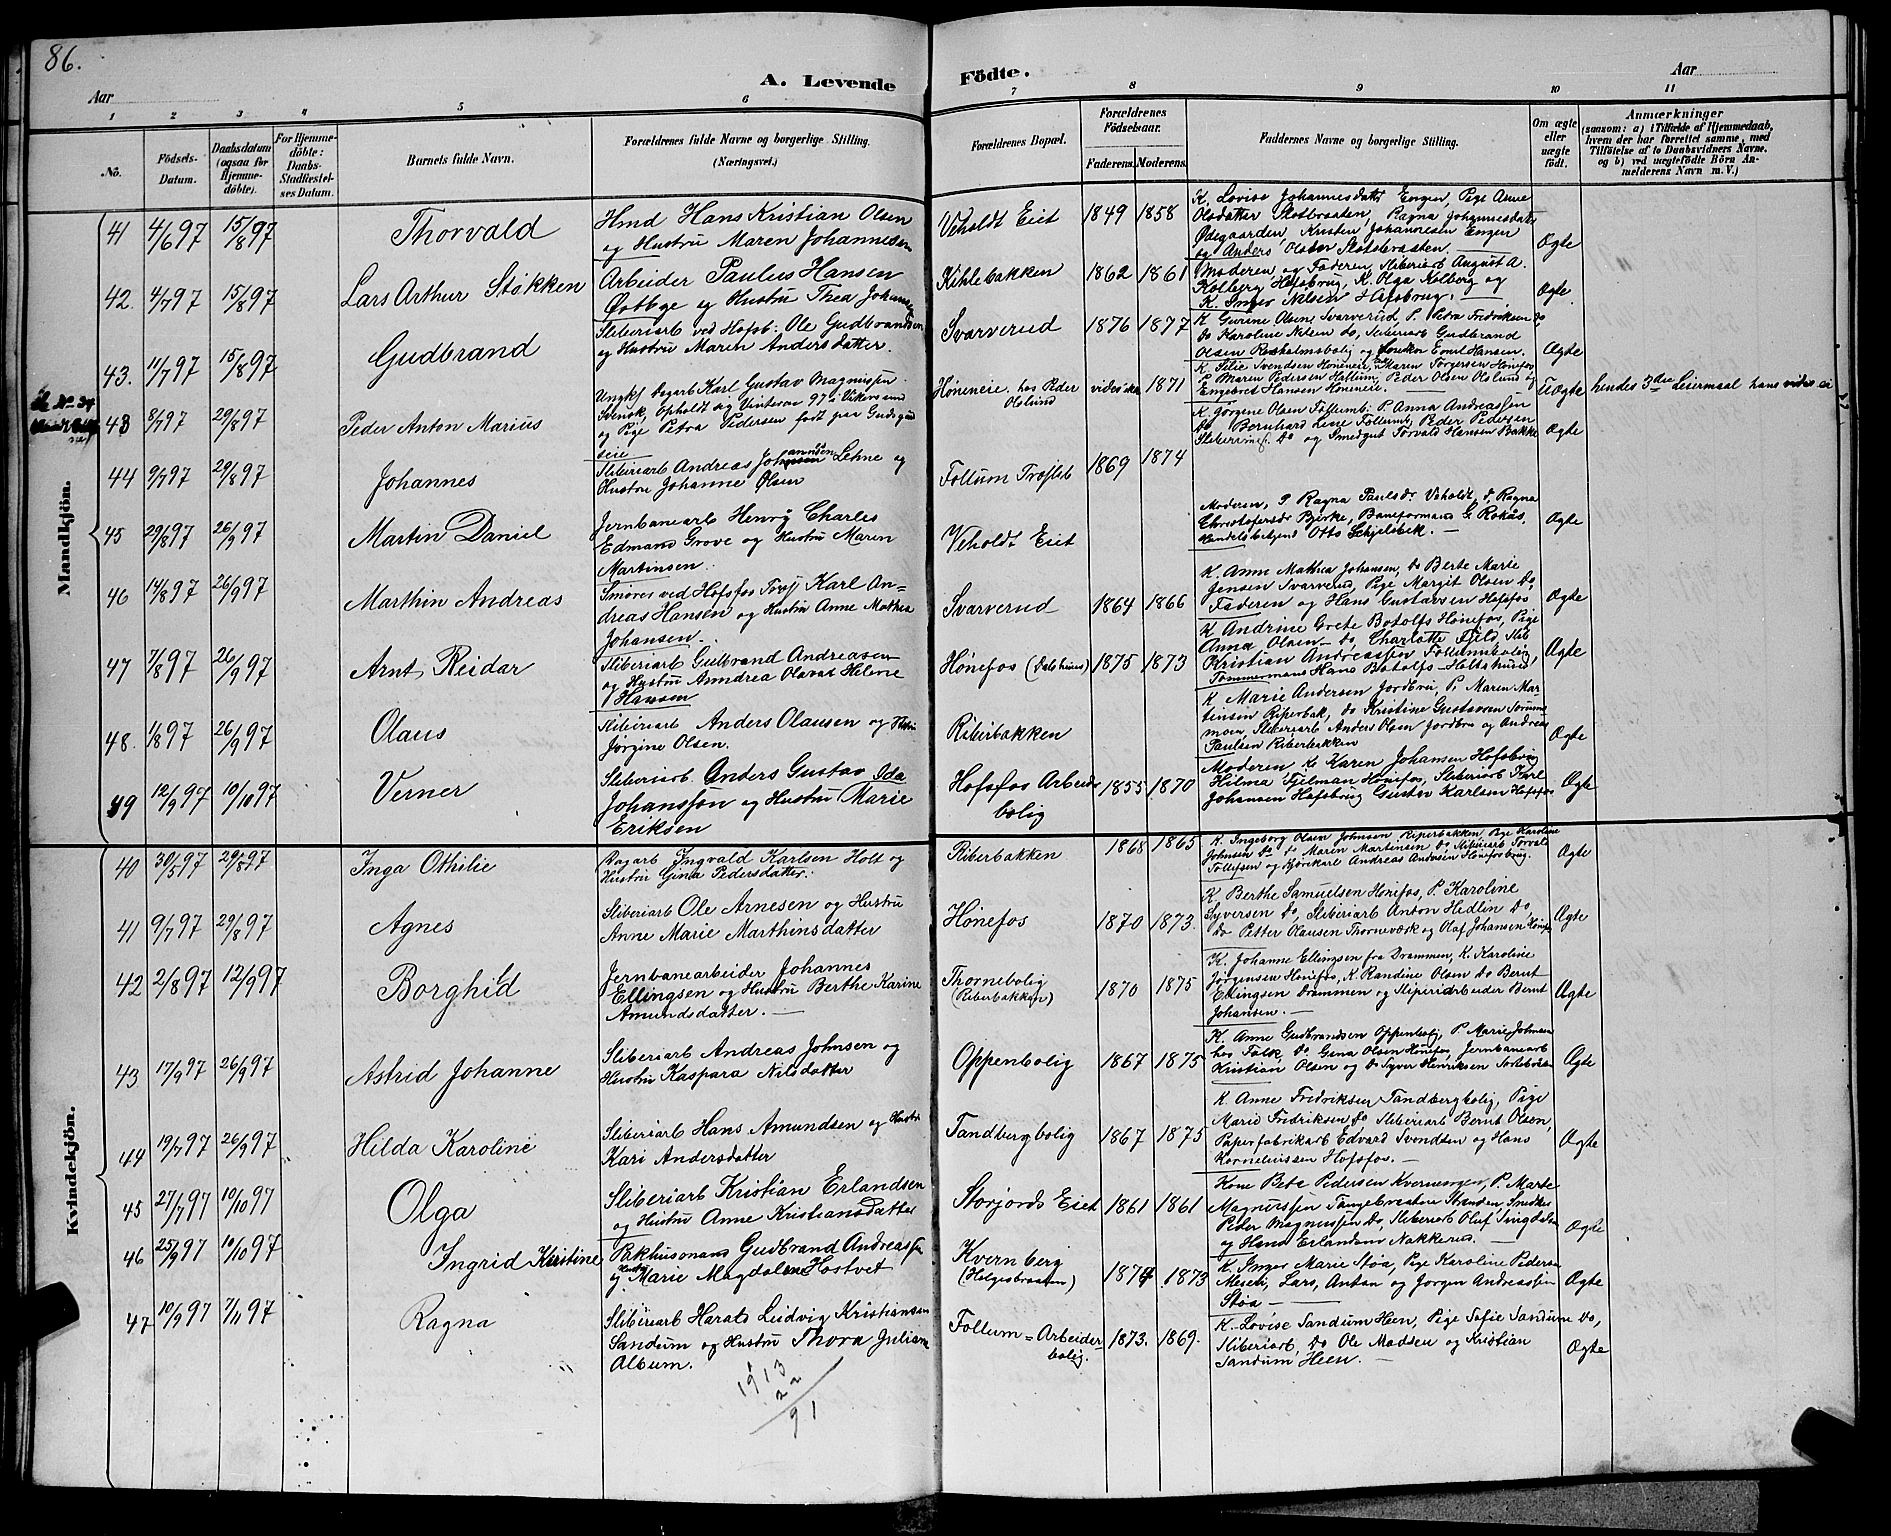 86.
A. Levende Födte.
Aar
Aar
1 2 3 4 5 6 7 8 9 10 11
No.
Födsels-
Datum.
Daabsdatum
(ogsaa for
Hjemme-
döbte).
For Hjemme-
döbte:
Daabs-
Stadfæstel-
ses Datum.
Barnets fulde Navn.
Forældrenes fulde Navne og borgerlige Stilling.
(Næringsvei.)
Forældrenes Bopæl.
Forældrenes
Födselsaar.
Faderens. Moderens.
Faddernes Navne og borgerlige Stilling.
Om ægte
eller
uægte
födt.
Anmærkninger
(saasom: a) i Tilfælde af Hjemmedaab,
hvem der har forrettet samme, med
Tilföielse af to Daabsvidners Navne.
og b) ved uægtefödte Börn An-
melderens Navn m. V.)
Mandkjön.
41 4/6 97 15/8 97 Thorvald
Hmd Hans Kristian Olsen
og Hustru Maren Johannesen
Veholdt Eiet 1849 1858
K. Lovise Johannesdatter Engen, Pige Anne
Olsdatter Slotbraaten, Ragna Johannesdatter
Ødegaarden, Kristen Johannesen Engen
og Anders Olsen Slotsbraaten
Ægte
42. 4/7 97 15/8 97 Lars Arthur Støkken
Arbeider Paulus Hansen
Østbye og Hustru Thea Johansen
Kihlebakken 1862 1861
Moderen og Faderen, Sliberiarb August A.
Kolberg Hofsbrug, K. Olga Kolberg og
K. Inger Nilsen Hofsbrug.
Ægte.
43. 11/7 97 15/8 97 Gudbrand
Sliberiarb ved Hofsb: Ole Gudbrandsen
og Hustru Maren Andersdatter.
Svarverud 1876 1877
K Gurine Olsen Svarverud, P. Petra Fredriksen do,
do Karoline Nilsen do, Sliberiarb Gudbrand
Olsen Rosholmsbolig og Snekker Emil Hansen.
Ægte
43 8/7 97 29/8 97 Peder Anton Marius
Ungkf Dagarb Karl Gustav Magnussen
Svensk, Opholdt sig Vinteren 97 i Vikersund
og Pige Petra Pedersen født paa Gudsgard
seie
Høneneie hos Peder
Olslund
vides ikke 1871
K. Silie Svendsen Høneneie, Maren Torgersen Hønefos,
P. Maren Pedersen Hallum, Peder Olsen Olslund og
Engebret Hansen Høneneie.
Uægte hendes 3die Leiermaal hans vides ei
44 9/7 97 29/8 97 Johannes
Sliberiarb Andreas Johannesen Lehne og
Hustru Johanne Olsen
Follum Træsleb 1869 1874
K. Jørgine Olsen Follumb. P. Anna Andreassen
do Bernhard Lene Follum, Peder Pedersen
do og Smedgut Torvald Hansen Bakke
Ægte
45 29/8 97 26/9 97 Martin Daniel
Jernbanearb Henry Charles
Edmand Grove og Hustru Maren
Martinsen.
Veholdt Eiet
Moderen, P Ragna Paulsdr Veholdt, d. Ragna
Christofersdr Bjerke, Baneformand G. Rokås,
Handelsbetjent Otto Schjelsbek.
Ægte
46 14/8 97 26/9 97 Marthin Andreas
Smører ved Hofsfos Træsl Karl An=
dreas Hansen og Hustru Anne Mathea
Johansen.
Svarverud 1864 1866
K. Anne Mathea Johansen, do Berte Marie
Jensen Svarverud, Pige Margit Olsen do,
Faderen og Hans Gustavsen Hofsfos
Ægte
47 7/8 97 26/9 97 Arnt Reidar
Sliberiarb Gulbrand Andreasen
og Hustru Anndrea Olava Helene
Hansen
Hønefos (Dalshuus) 1875 1873
K Andrine Grete Botolfs Hønefos, Pige
Anna Olsen do, Charlotte Fjeld, Slib
Kristian Andreassen Follumsbolig,
Tømmermand Hans Botolfs
Ægte
48. 1/8 97 26/9 97 Olaus
Sliberiarb Anders Olausen og Hustru
Jørgine Olsen.
Riberbakken
K Marie Andersen Jordbru, P. Maren Mar
tinsen Riperbak, do Kristine Gustavsen
moen, Sliberiarb Anders Olsen Jordbru og Andreas
Paulsen Riberbakken
Ægte
49 12/9 97 10/10 97 Verner
Sliberiarb. Anders Gustav
Johansson og Hustru Ida Marie
Eriksen
Hofsfos Arbeids
bolig
1855 1870
Moderen K Karen Johansen Hofsbrug
Hilma Fjelman Hønefos, Sliberiarb Karl
Johansen Hofsbrug Gustav Karlsen Hofsfos
Ægte
Kvindekjön.
40 30/5 97 29/8 97 Inga Othilie
Dagarb Ingvald Karlsen Holt og
Hustru Gina Pedersdatter.
Riberbakken 1868 1865
K. Ingeborg Olsen Johnsen Riperbakken, Pige Karoline
Johnsen do do Maren Martinsen do, Sliberiarb Torvald
Tollefsen og Kjørekarl Andreas Andersen Hønefosbrug.
Ægte
41 9/7 97 29/8 97 Agnes
Sliberiarb Ole Arnesen og Hustru
Anne Marie Marthinsdatter
Hønefos 1870 1873.
K. Berthe Samuelsen Hønefos, P. Karoline
Syversen do, Sliberiarb Anton Hedlin do,
do Petter Olausen Thorneværk og Olaf Johansen Hønefos
Ægte
42 2/8 97 12/9 97 Borghild
Jernbanearbeider Johannes
Ellingsen og Hustru Berthe Karine
Amundsdatter.
Thornebolig
(Riberbakken)
1870 1875
K. Johanne Ellingsen fra Drammen, K. Karoline
Jørgensen Hønefos, K. Randine Olsen do Bernt
Ellingsen Drammen og Sliperiarbeider Bernt
Johansen.
Ægte
43 17/9 97 26/9 97 Astrid Johanne
Sliberiarb Andreas Johnsen og
Hustru Kaspara Nilsdatter
Oppenbolig 1867 1875
K. Anne Gudbrandsen Oppenbolig, P. Marie Johnsen
hos Falk, do. Gina Olsen Hønefos, Jernbanearb
Kristian Olsen og do Syver Henriksen
Ægte
44 19/7 97 26/9 97 Hilda Karoline
Sliberiarb Hans Amundsen og Hustru
Kari Andersdatter
Tandbergbolig 1867 1875
K. Anne Fredriksen Tandbergbolig, Pige
Marie Fridriksen do Sliberiarb Bernt Olsen,
Paperfabrikarb Edvard Svendsen og Hans
Korneliussen Hofsfos.
Ægte
45 27/7 97 10/10 97 Olga
Sliberiarb Kristian Erlandsen
og Hustru Anne Kristiansdatter
Storjords Eiet 1861 1861
Kone Bete Pedersen Kvernengen, P. Marte
Magnussen Tangebraaten Stranden, Snedker
Peder Magnussen do, Sliberiarb Oluf
og Hans Erlandsen Nakkerud.
Ægte
46 25/9 97 10/10 97 Ingrid Kristine
Pakhusmand Gudbrand Andreassen
og Hustru Marie Magdalene Hostvet
Kvernberg
(Helgesbraaten)
1874 1873
K. Inger Marie Støa, Pige Karoline Pedersen
Mesch, Lars, Anton og Jørgen Andreassen
Støa
Ægte
47 10/9 97 7/11 97 Ragna
Sliberiarb Harald Ludvig Kristiansen
Sandum og Hustru Thora Juliane
Album.
Follum=Arbeider=
bolig.
1873. 1869.
K. Lovise Sandum Heen, Pige Sofie Sandum do,
Sliberiarb, do Ole Madsen og Kristian
Sandum Heen.
Ægte
1913
22
91